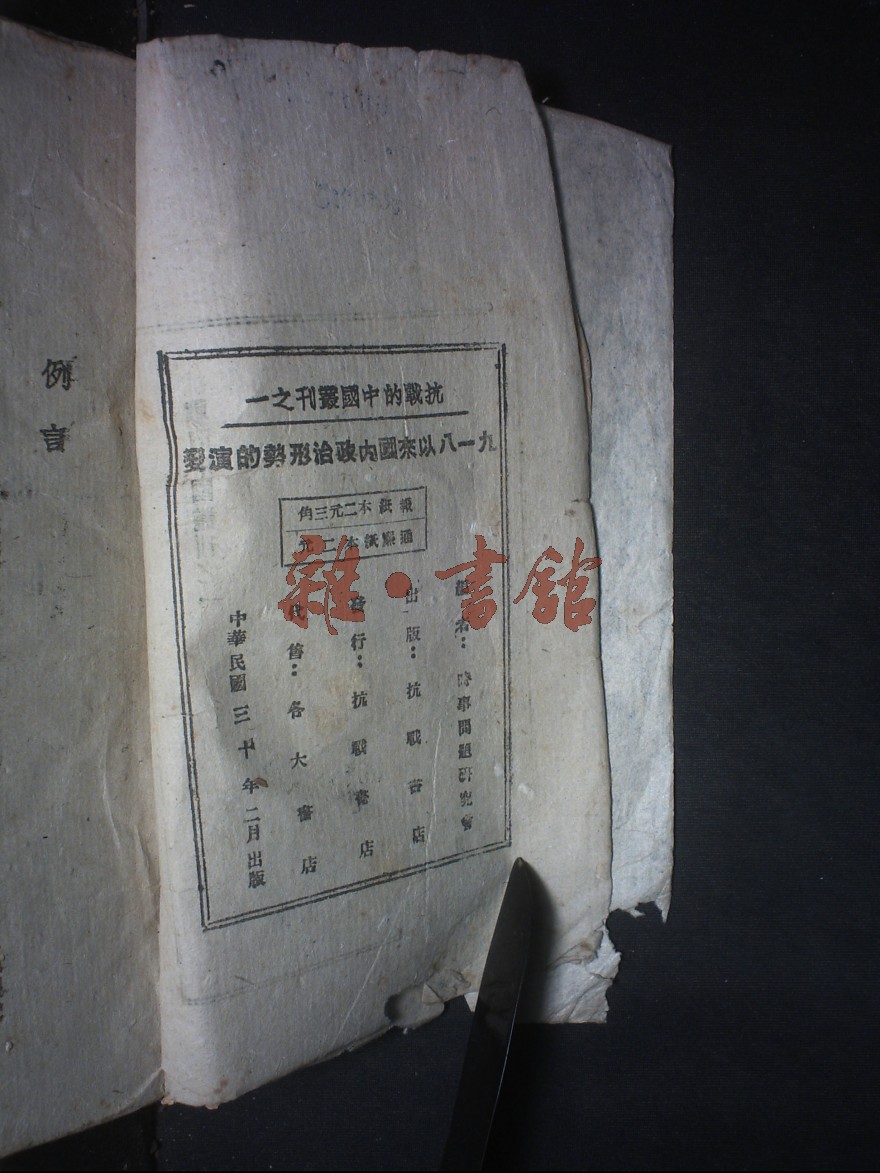 抗戰的中國叢刊之一
九一八以來國內政治形勢的演變
報紙本二元三角
紙本二元
者：時事問題研究會
出版：抗戰書店
發行：抗戰書店
代售：各大書店
中華民國三十年二月出版
例言
雜·書館